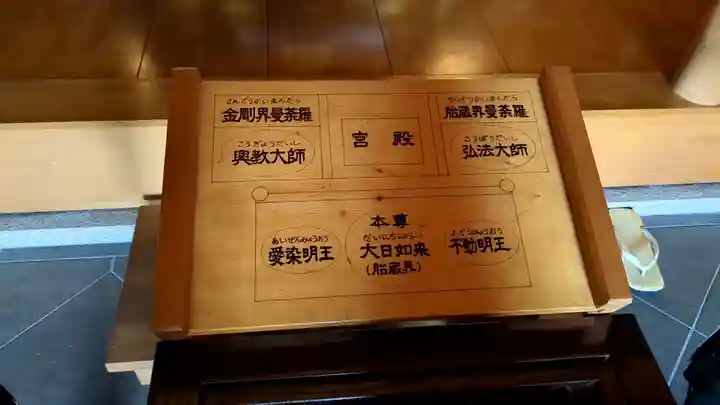 こんごうかいまんだら
金剛界曼荼羅
こうぎょうだいし
興教大師
宮殿
たいぞうかいまんだら
胎蔵界曼荼羅
こうぼうだいし
弘法大師
本尊
あいぜんみょうおう
愛染明王
だいにちにょらい
大日如来
(胎蔵界)
ふどうみょうおう
不動明王